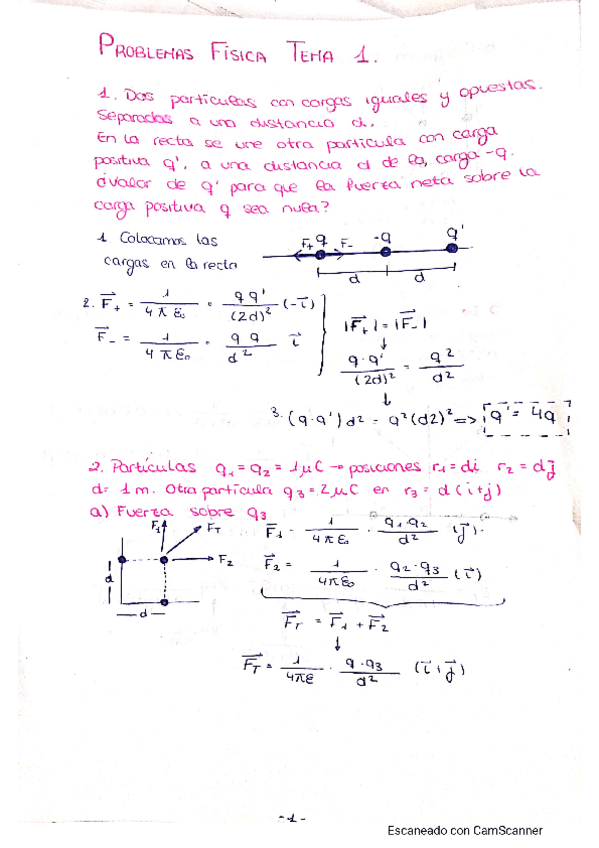 PROBLEMAS FÍSICA TEMA 1.
1. Dos partículas con cargas iguales y opuestas.
Separadas a una distancia d.
En la recta se une otra partícula con carga
positiva q', a una distancia d de la carga -q.
¿valor de q' para que la fuerza neta sobre la
carga positiva q sea nula?
1 Colocamos las
cargas en la recta
F+ q F- -q q'
d d
2. F+ = 1 / 4πε₀ · q q' / (2d)² (-i)
F- = 1 / 4πε₀ · q q / d² i
|F+| = |F-|
↓
q·q' / (2d)² = q² / d²
↓
3. (q·q') d² = q² (d2)² => q' = 4q
2. Partículas q₁ = q₂ = 1μC → posiciones r₁ = di r₂ = dj
d = 1 m. Otra partícula q₃ = 2μC en r₃ = d (i+j)
a) Fuerza sobre q₃
F₁ FT F₂
d
d
F₁ = 1 / 4πε₀ · q₁·q₂ / d² (j).
F₂ = 1 / 4πε₀ · q₂·q₃ / d² (i)
FT = F₁ + F₂
↓
FT = 1 / 4πε · q·q₃ / d² (i+j)
-1-
Escaneado con CamScanner